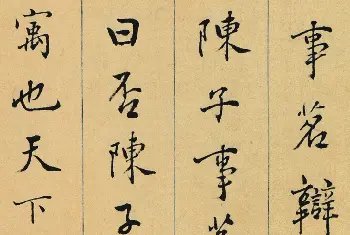 事茗辯
陳子事茗
曰否陳子
寓也天下